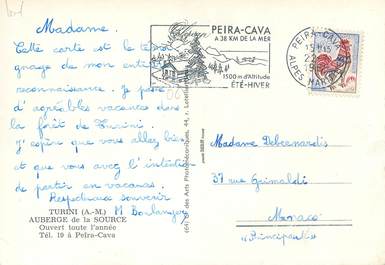 Madame.
Cette carte est le témoi
gnage de mon entière
reconnaissance. Je passe
d'agréables vacances dans
la forêt de Turini.
J'espère que vous allez bien
et que vous avez l'intention
de partir en vacances.
Respectueux souvenir
M Boulanger
TURINI (A.-M.)
AUBERGE de la SOURCE
Ouvert toute l'année
Tél. 19 à Peïra-Cava
PEIRA-CAVA
A 38 KM DE LA MER
1500 m d'Altitude
ÉTÉ-HIVER
PEIRA-CAVA
15 H 15
ALPES MARITIMES
Madame Debernardis
37 rue Grimaldi
Monaco
"Principauté"